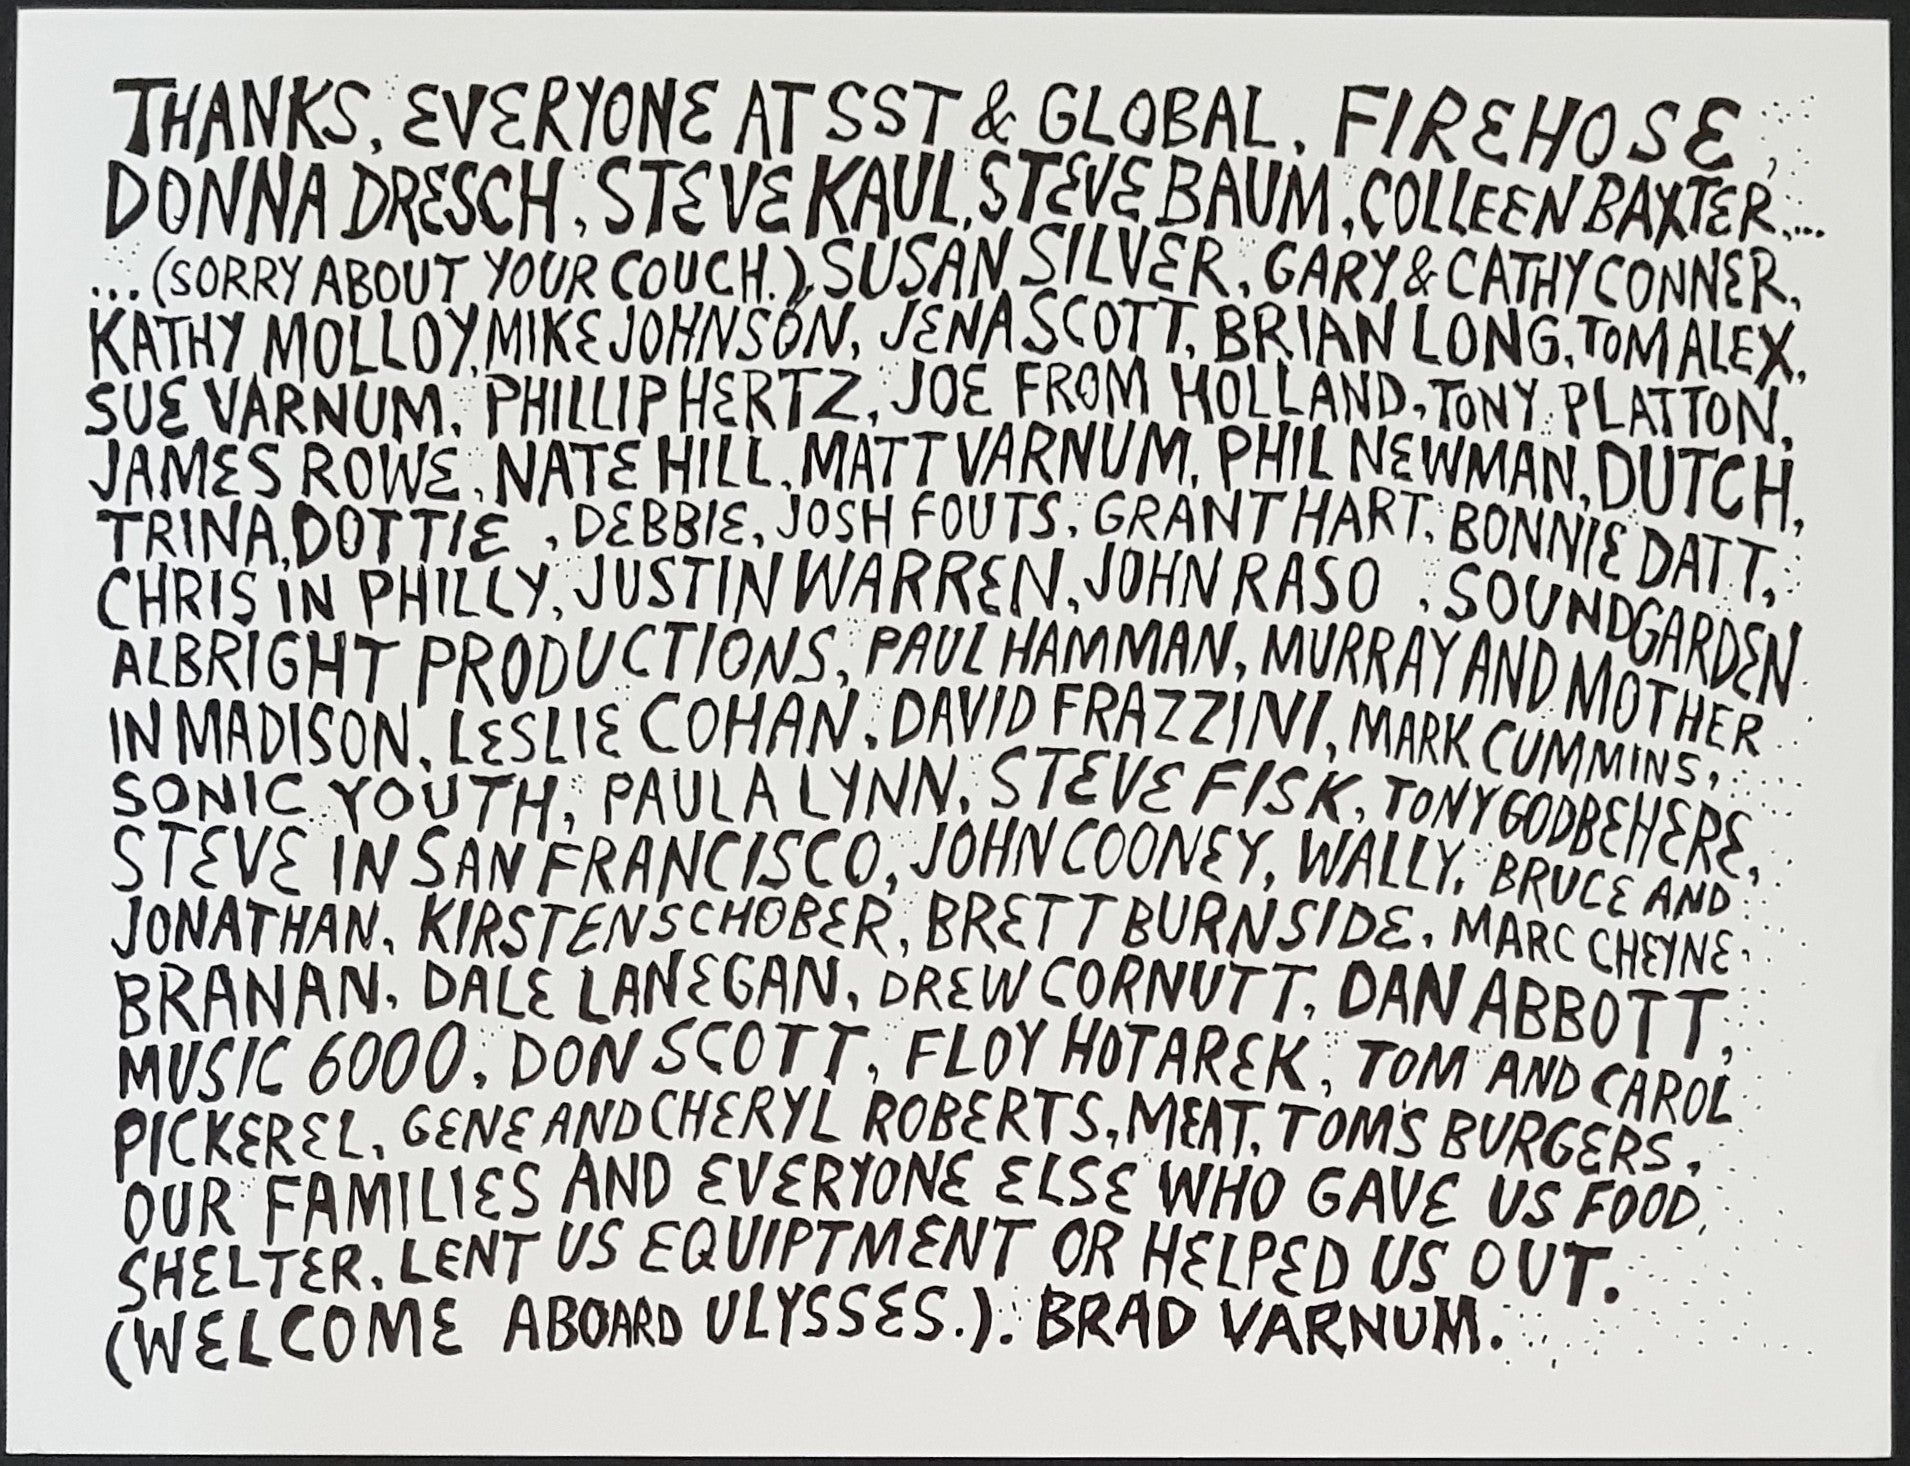 THANKS, EVERYONE AT SST & GLOBAL, FIREHOSE,
DONNA DRESCH, STEVE KAUL, STEVE BAUM, COLLEEN BAXTER,...
...(SORRY ABOUT YOUR COUCH.), SUSAN SILVER, GARY & CATHY CONNER,
KATHY MOLLOY, MIKE JOHNSON, JENA SCOTT, BRIAN LONG, TOM ALEX,
SUE VARNUM, PHILLIP HERTZ, JOE FROM HOLLAND, TONY PLATTON,
JAMES ROWE, NATE HILL, MATT VARNUM, PHIL NEWMAN, DUTCH,
TRINA, DOTTIE, DEBBIE, JOSH FOUTS, GRANT HART, BONNIE DATT,
CHRIS IN PHILLY, JUSTIN WARREN, JOHN RASO, SOUNDGARDEN
ALBRIGHT PRODUCTIONS, PAUL HAMMAN, MURRAY AND MOTHER
IN MADISON, LESLIE COHAN, DAVID FRAZZINI, MARK CUMMINS,
SONIC YOUTH, PAULA LYNN, STEVE FISK, TONY GODBEHERE,
STEVE IN SAN FRANCISCO, JOHN COONEY, WALLY, BRUCE AND
JONATHAN, KIRSTEN SCHOBER, BRETT BURNSIDE, MARC CHEYNE,
BRANAN, DALE LANEGAN, DREW CORNUTT, DAN ABBOTT,
MUSIC 6000, DON SCOTT, FLOY HOTAREK, TOM AND CAROL
PICKEREL, GENE AND CHERYL ROBERTS, MEAT, TOM'S BURGERS,
OUR FAMILIES AND EVERYONE ELSE WHO GAVE US FOOD,
SHELTER, LENT US EQUIPTMENT OR HELPED US OUT.
(WELCOME ABOARD ULYSSES.). BRAD VARNUM.